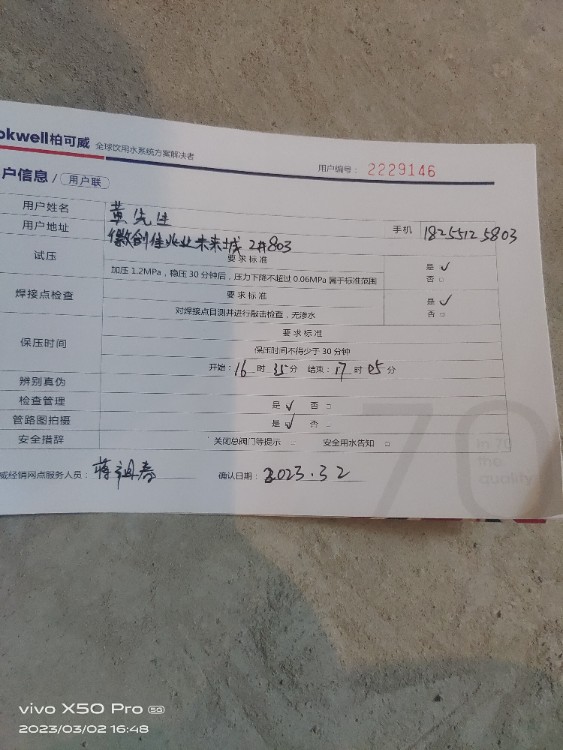 okwell柏可威 全球饮用水系统方案解决者
用户编号： 2229146
户信息 / 用户联
用户姓名 黄先生
用户地址 徽创佳兆业未来城 2#803 手机 18255125803
试压 要求标准 是 ✓
加压1.2MPa，稳压30分钟后，压力下降不超过0.06MPa属于标准范围 否 □
焊接点检查 要求标准 是 ✓
对焊接点目测并进行敲击检查，无渗水 否 □
保压时间 要求标准
保压时间不得少于30分钟
开始：16 时 35 分 结束：17 时 05 分
辨别真伪
检查管理 是 ✓ 否 □
管路图拍摄 是 ✓ 否 □
安全措辞 关闭总阀门等提示 □ 安全用水告知 □
威经销网点服务人员： 蒋祖春 确认日期： 2023.3 2
70
Its 70
the
quality
vivo X50 Pro 5G
2023/03/02 16:48